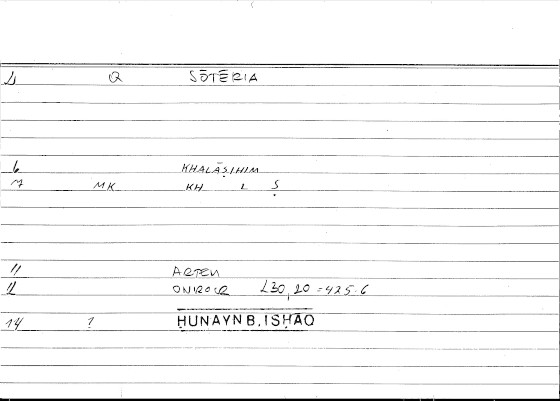 4 Q SŌTĒRIA
6 KHALĀṢIHIM
7 MK KH L Ṣ
11 ARTEM
12 ONIROCR 230,20 = 425.6
14 ? ḤUNAYN B. ISḤĀQ